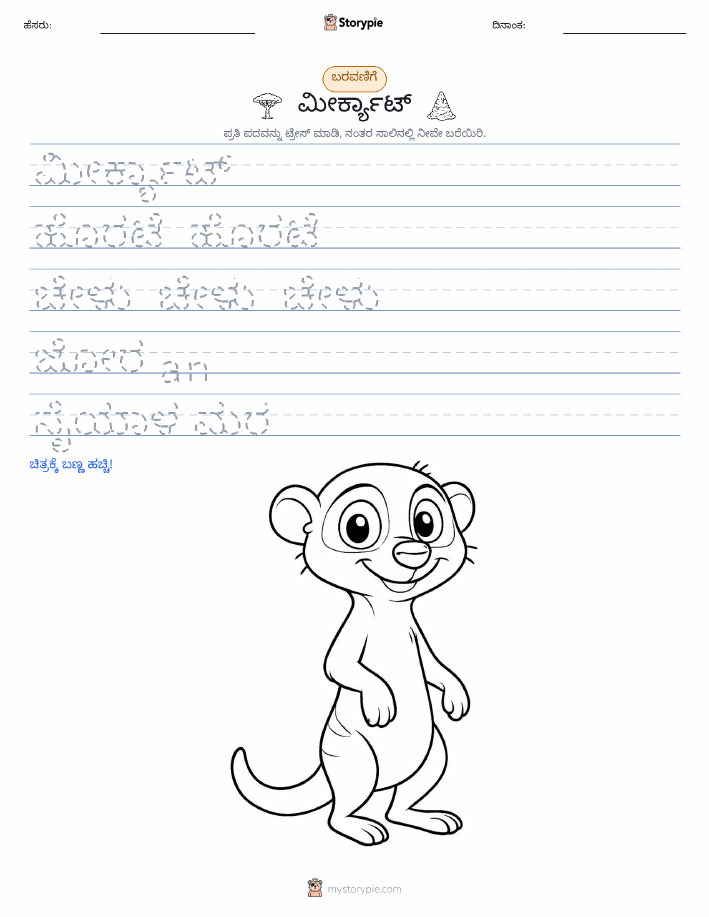 ಹೆಸರು:
Storypie
ದಿನಾಂಕ:
ಬರವಣಿಗೆ
ಮೀರ್ಕ್ಯಾಟ್
ಪ್ರತಿ ಪದವನ್ನು ಟ್ರೇಸ್ ಮಾಡಿ, ನಂತರ ಸಾಲಿನಲ್ಲಿ ನೀವೇ ಬರೆಯಿರಿ.
ಮೀರ್ಕ್ಯಾಟ್
ಚೇಳು ಚೇಳು ಚೇಳು
an
ಮರ
ಚಿತ್ರಕ್ಕೆ ಬಣ್ಣ ಹಚ್ಚಿ!
mystorypie.com